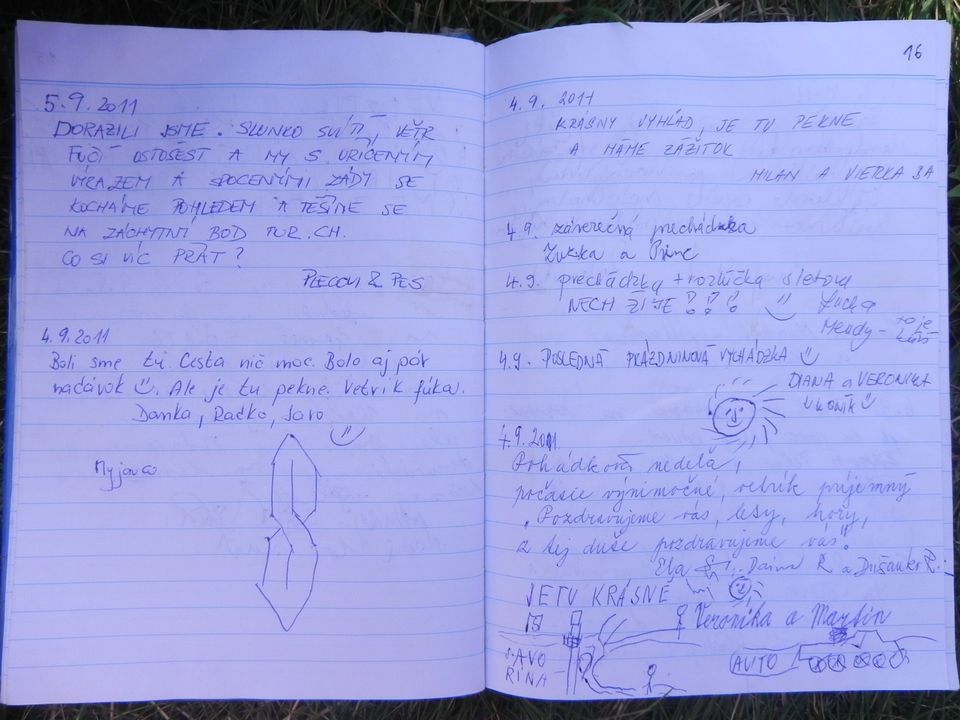 5.9.2011
DORAZILI JSME. SLUNKO SVÍTÍ, VETŘ
FUČÍ OSTOŠEST A MY S URIČENÍM
VÝRAZEM A SPOCENÝMI ZÁDY SE
KOCHÁME POHLEDEM A TĚŠÍME SE
NA ZÁCHYTNÍ BOD TUR. CH.
CO SI VÍC PŘÁT?
PLECOUN & PES
4.9.2011
Boli sme tu. Cesta nič moc. Bolo aj pár
nadávok. Ale je tu pekne. Vetrík fúka.
Danka, Raďko, Jaro
Myjavco
16
4.9. 2011
KRÁSNY VÝHĽAD, JE TU PEKNE
A MÁME ZÁŽITOK
MILAN A VIERKA BA
4.9. záverečná prechádzka
Zuzka a
4.9. prechádzka + rozlúčka s letom
NECH ŽIJE !!!
4.9. POSLEDNÁ PRÁZDNINOVÁ VYCHÁDZKA
DIANA a VERONIKA
4.9.2011
Pohádková nedeľa,
počasie výnimočné, vetrík príjemný
"Pozdravujeme vás, lesy, hory,
z tej duše pozdravujeme vás!"
Ela
JE TU KRÁSNĚ
Veronika a Martin
JAVO
RINA
AUTO